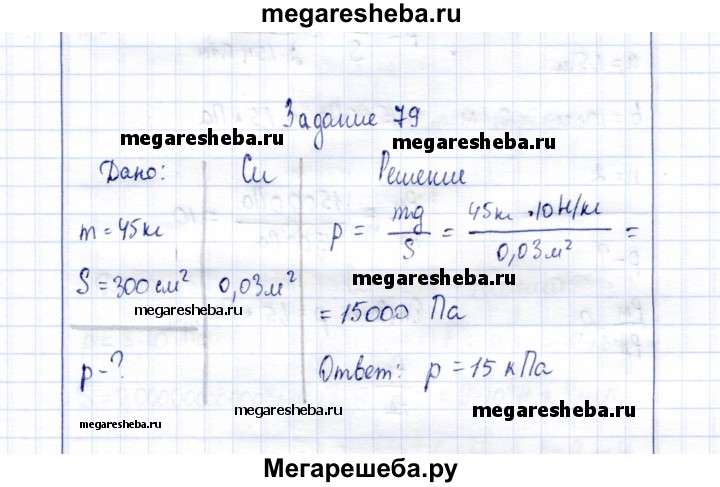 megaresheba.ru
Задание 79
megaresheba.ru
megaresheba.ru
Дано: Си Решение
m = 45 кг
p = mg/S = 45 кг · 10 Н/кг / 0,03 м² =
megaresheba.ru
S = 300 см² 0,03 м²
megaresheba.ru
= 15000 Па
p - ?
Ответ: p = 15 кПа
megaresheba.ru
megaresheba.ru
megaresheba.ru
Мегарешеба.ру